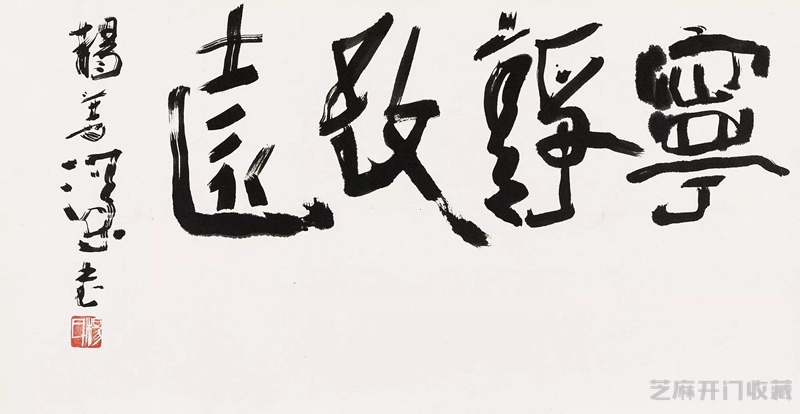 寧靜致遠
楊善深書
芝麻开门收藏